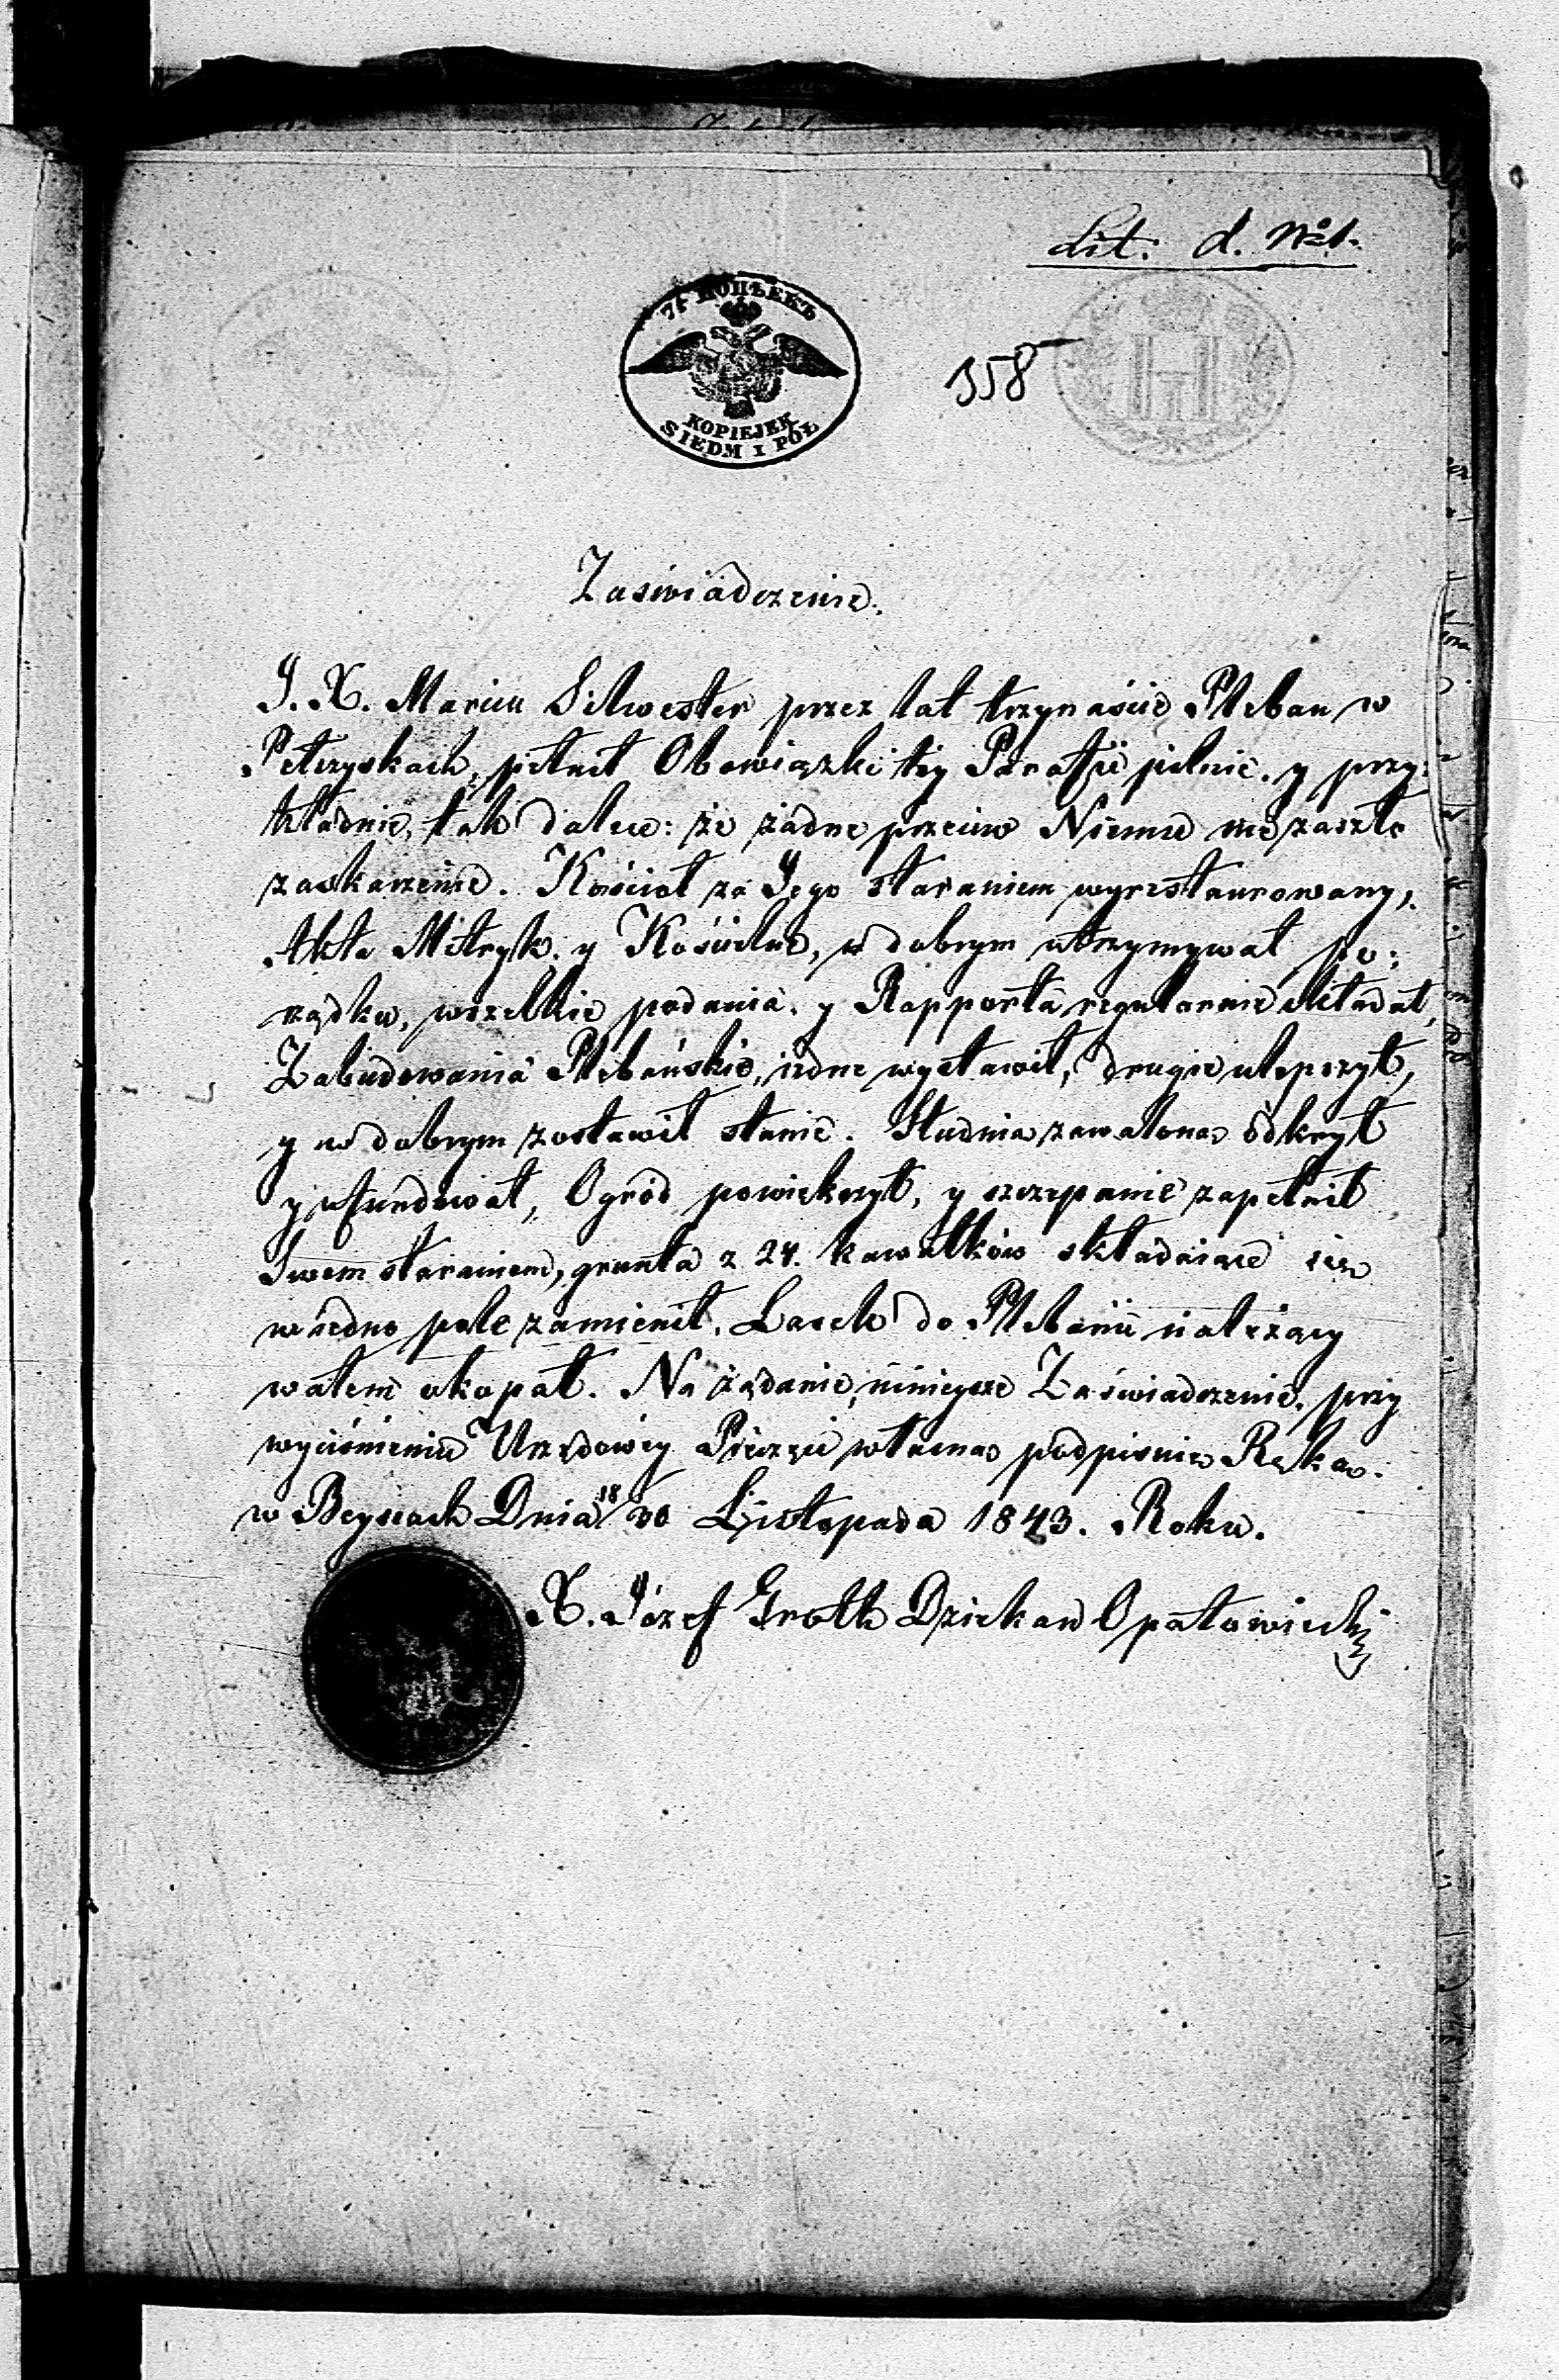 Lit. d. No 1.
7½ КОПѢЕКЪ
KOPIEJEK
SIEDM I PÓŁ
358
Zaświadczenie.
J. X. Silwester przez lat trzynaście Pleban w
Pełczyskach, pełnił Obowiązki tey Paraffii pilnie, y przy:
kładnie, tak dalece: że żadne przeciw Niemu nie zaszło
zaskarżenie. Kościoł za Jego staraniem wyrestaurowany,
Akta Metryk. y Kościelne, w dobrym utrzymywał po:
rządku, wszelkie podania, y Rapporta regularnie składał,
Zabudowania Plebańskie, iedne wystawił, drugie ulepszył,
y w dobrym zostawił stanie. Studnia zawalona odkrył
y ufundował, Ogród powiekszył, y szczepanie zapełnił
Swem staraniem, grunta z 24. kawałków składaiące sie
w iedno pole zamienił. Lasek do Plebanii należący
wałem okopał. Na żądanie, ninieysze Zaświadczenie, przy
wyciśnieniu Urzędowey Pieczęci własna podpisuie Ręka.
w Beyscach Dnia 18/30 Listopada 1843. Roku.
X. Józef Groth Dziekan Opatowiecki